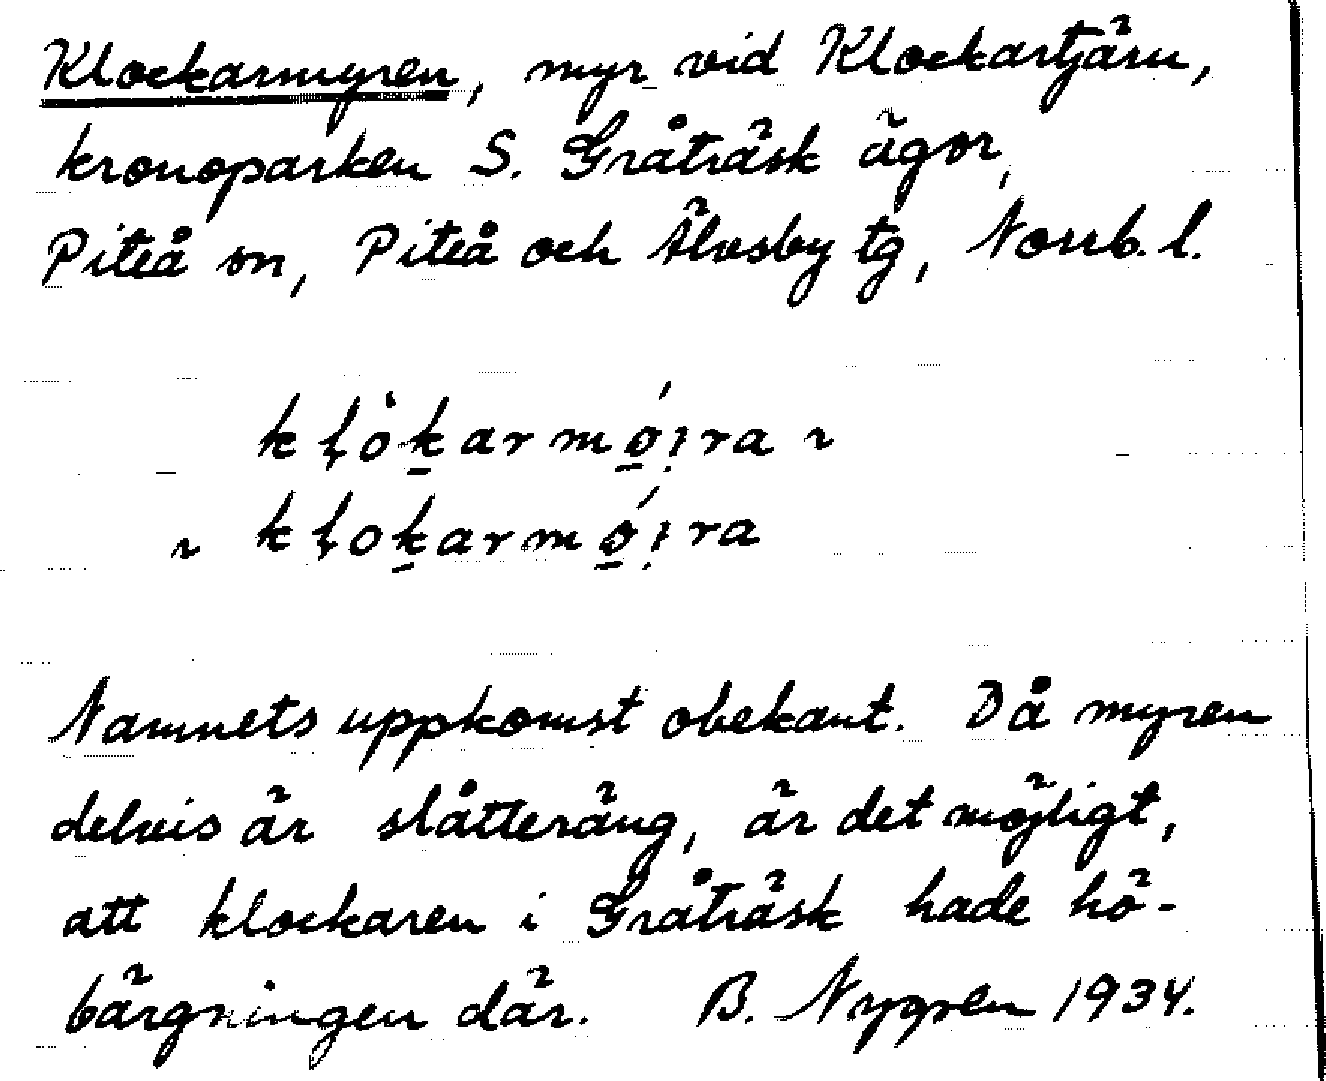 Klockarmyren, myr vid Klockartjärn,
kronoparken S. Gråträsk ägor,
Piteå sn, Piteå och Älvsby tg, Norrb. l.
Namnets uppkomst obekant. Då myren
delvis är slåtteräng, är det möjligt,
att klockaren i Gråträsk hade hö-
bärgningen där. B. Nygren 1934.